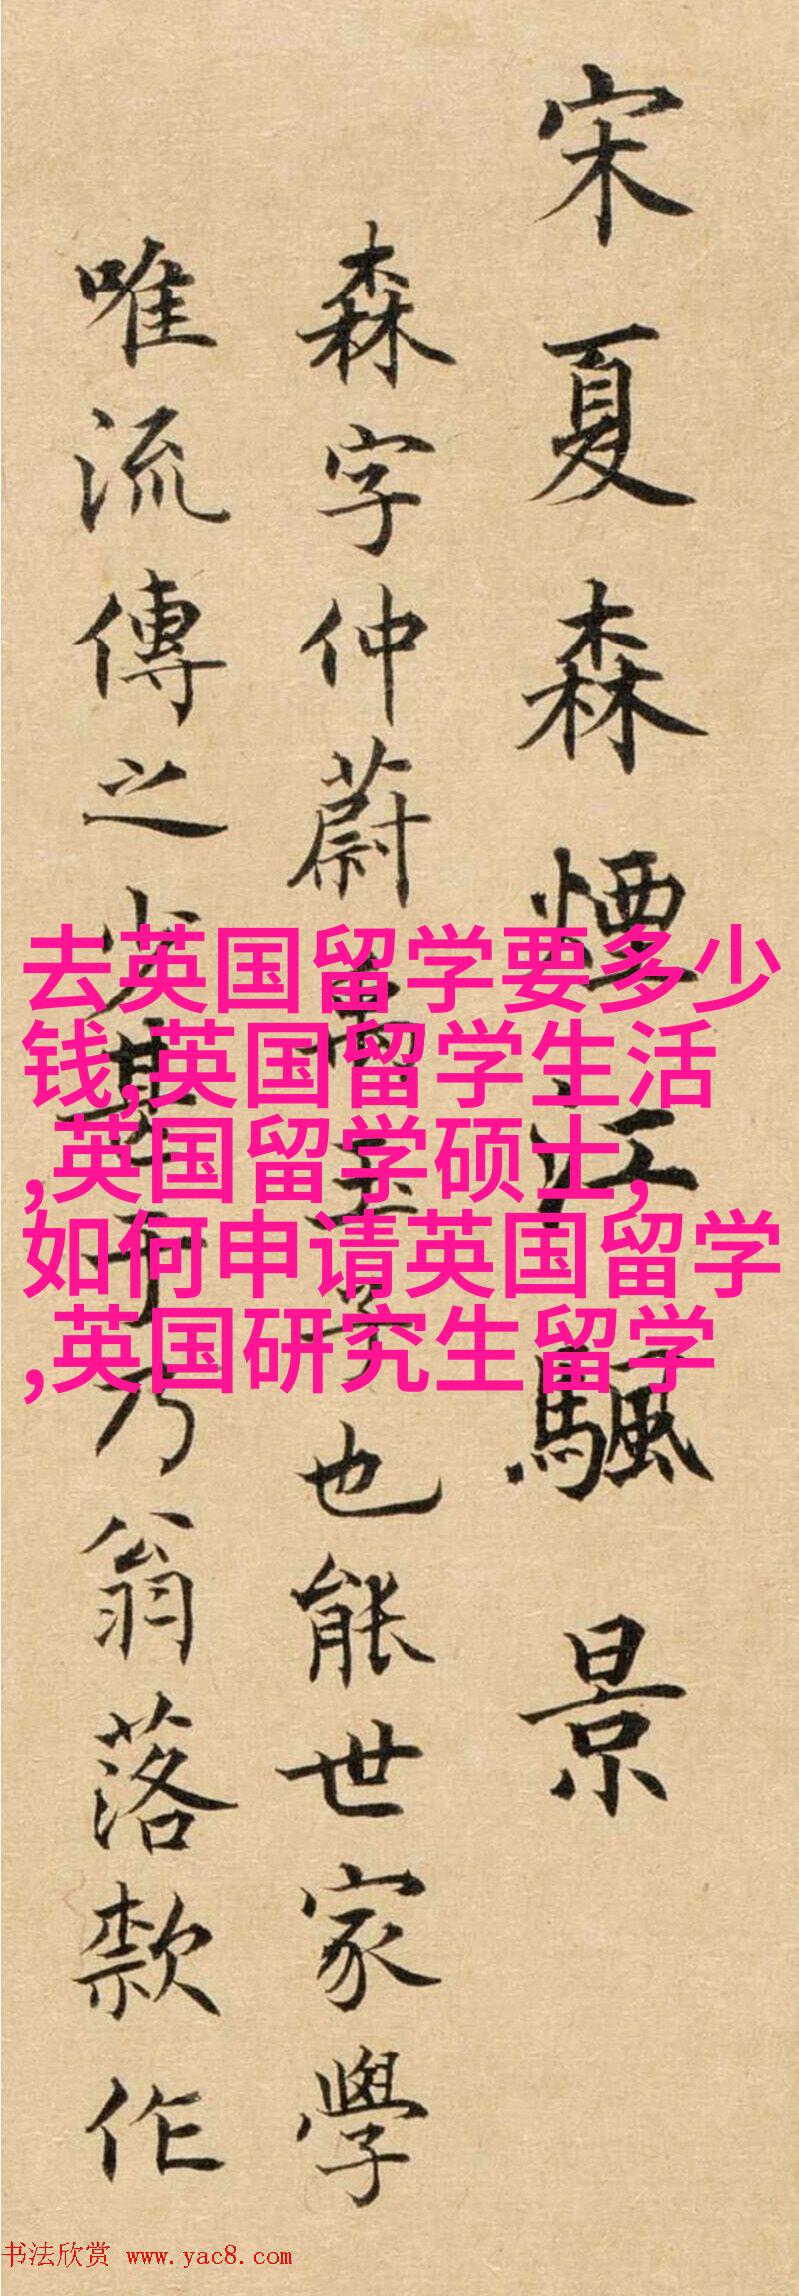 宋夏森煙江驅景
森字仲蔚禹玉子也能世家學
唯流傳之少甚于乃翁落款作
去英国留学要多少
钱,英国留学生活
,英国留学硕士,
如何申请英国留学
,英国研究生留学
书法欣赏 www.yac8.com